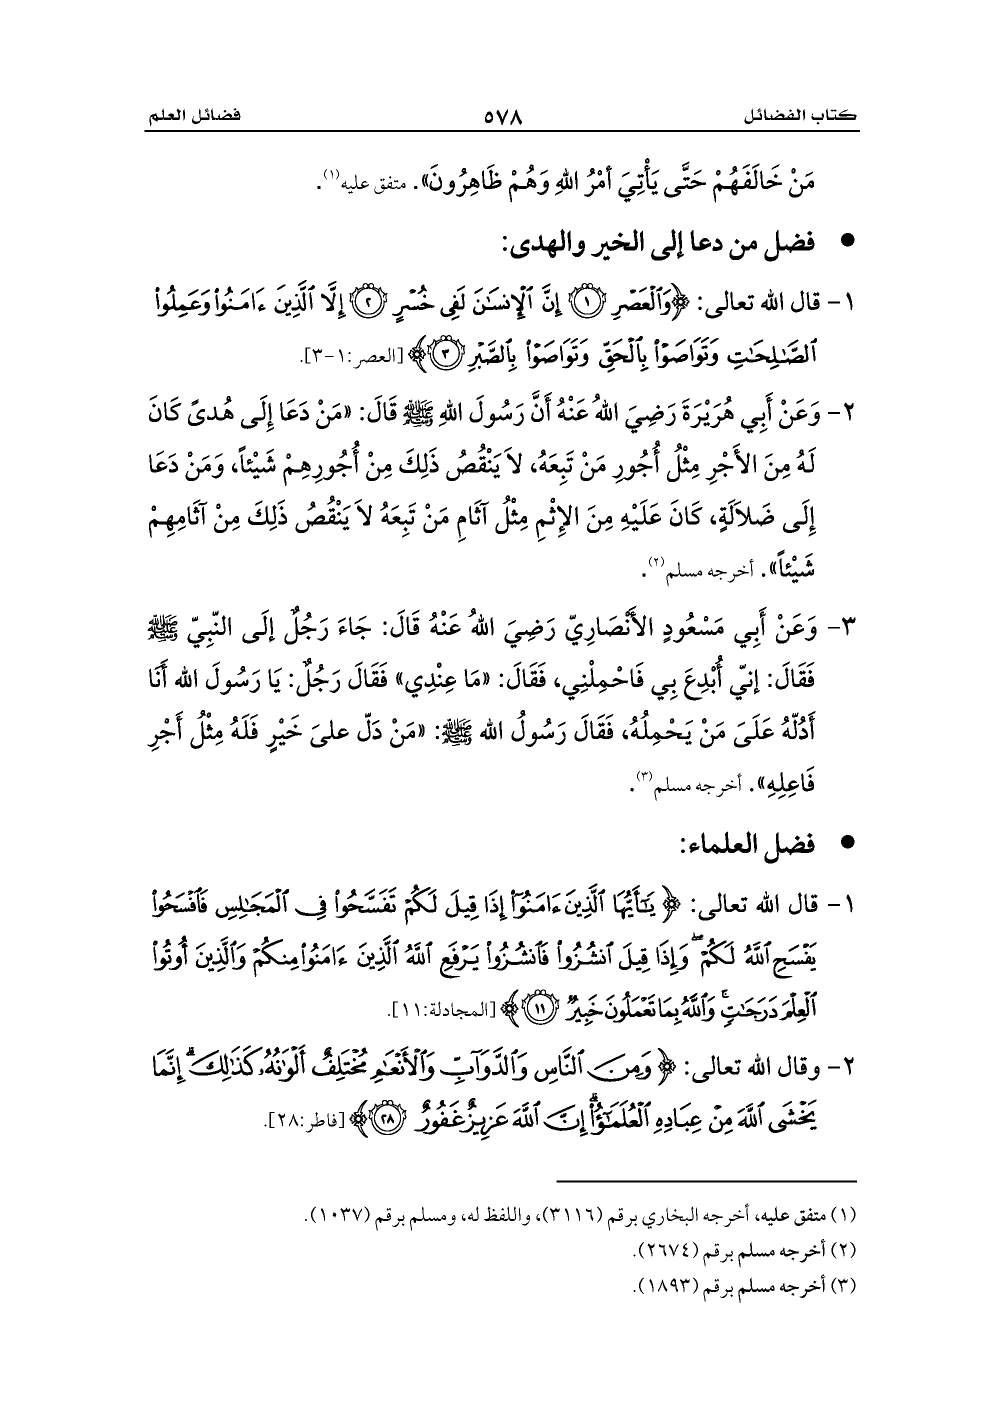 كتاب الفضائل ٥٧٨ فضائل العلم
مَنْ خَالَفَهُمْ حَتَّى يَأْتِيَ أمْرُ اللهِ وَهُمْ ظَاهِرُونَ». متفق عليه(١).
● فضل من دعا إلى الخير والهدى:
١- قال الله تعالى: ﴿وَٱلْعَصْرِ ۝١ إِنَّ ٱلْإِنسَٰنَ لَفِى خُسْرٍ ۝٢ إِلَّا ٱلَّذِينَ ءَامَنُوا۟ وَعَمِلُوا۟
ٱلصَّٰلِحَٰتِ وَتَوَاصَوْا۟ بِٱلْحَقِّ وَتَوَاصَوْا۟ بِٱلصَّبْرِ ۝٣﴾ [العصر:١-٣].
٢- وَعَنْ أَبِي هُرَيْرَةَ رَضِيَ اللهُ عَنْهُ أَنَّ رَسُولَ اللهِ ﷺ قَالَ: «مَنْ دَعَا إلَى هُدىً كَانَ
لَهُ مِنَ الأَجْرِ مِثْلُ أُجُورِ مَنْ تَبِعَهُ، لاَ يَنْقُصُ ذَلِكَ مِنْ أُجُورِهِمْ شَيْئاً، وَمَنْ دَعَا
إلَى ضَلاَلَةٍ، كَانَ عَلَيْهِ مِنَ الإثْمِ مِثْلُ آثَامِ مَنْ تَبِعَهُ لاَ يَنْقُصُ ذَلِكَ مِنْ آثَامِهِمْ
شَيْئاً». أخرجه مسلم(٢).
٣- وَعَنْ أَبِي مَسْعُودٍ الأَنْصَارِيّ رَضِيَ اللهُ عَنْهُ قَالَ: جَاءَ رَجُلٌ إلَى النّبِيّ ﷺ
فَقَالَ: إنّي أُبْدِعَ بِي فَاحْمِلْنِي، فَقَالَ: «مَا عِنْدِي» فَقَالَ رَجُلٌ: يَا رَسُولَ الله أَنَا
أَدُلّهُ عَلَىَ مَنْ يَحْمِلُهُ، فَقَالَ رَسُولُ الله ﷺ: «مَنْ دَلّ علىَ خَيْرٍ فَلَهُ مِثْلُ أَجْرِ
فَاعِلِهِ». أخرجه مسلم(٣).
● فضل العلماء:
١- قال الله تعالى: ﴿يَٰٓأَيُّهَا ٱلَّذِينَ ءَامَنُوٓا۟ إِذَا قِيلَ لَكُمْ تَفَسَّحُوا۟ فِى ٱلْمَجَٰلِسِ فَٱفْسَحُوا۟
يَفْسَحِ ٱللَّهُ لَكُمْ ۖ وَإِذَا قِيلَ ٱنشُزُوا۟ فَٱنشُزُوا۟ يَرْفَعِ ٱللَّهُ ٱلَّذِينَ ءَامَنُوا۟ مِنكُمْ وَٱلَّذِينَ أُوتُوا۟
ٱلْعِلْمَ دَرَجَٰتٍ ۚ وَٱللَّهُ بِمَا تَعْمَلُونَ خَبِيرٌ ۝١١﴾ [المجادلة:١١].
٢- وقال الله تعالى: ﴿وَمِنَ ٱلنَّاسِ وَٱلدَّوَآبِّ وَٱلْأَنْعَٰمِ مُخْتَلِفٌ أَلْوَٰنُهُۥ كَذَٰلِكَ ۗ إِنَّمَا
يَخْشَى ٱللَّهَ مِنْ عِبَادِهِ ٱلْعُلَمَٰٓؤُا۟ ۗ إِنَّ ٱللَّهَ عَزِيزٌ غَفُورٌ ۝٢٨﴾ [فاطر:٢٨].
(١) متفق عليه، أخرجه البخاري برقم (٣١١٦)، واللفظ له، ومسلم برقم (١٠٣٧).
(٢) أخرجه مسلم برقم (٢٦٧٤).
(٣) أخرجه مسلم برقم (١٨٩٣).